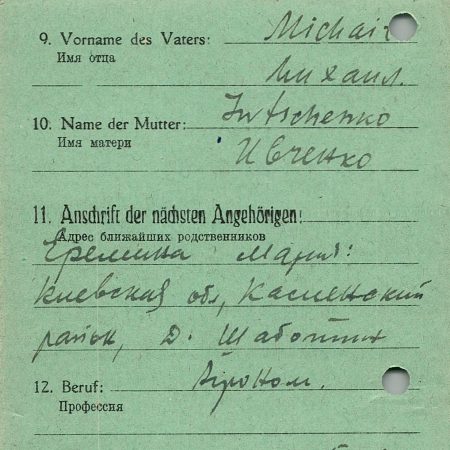 9. Vorname des Vaters: Michail
Имя отца
Михаил.
10. Name der Mutter: Iwtschenko
Имя матери
Ивченко
11. Anschrift der nächsten Angehörigen:
Адрес ближайших родственников
Еремина Мария:
Киевская обл, Каменский
район, д. Шаботин
12. Beruf: Агроном.
Профессия